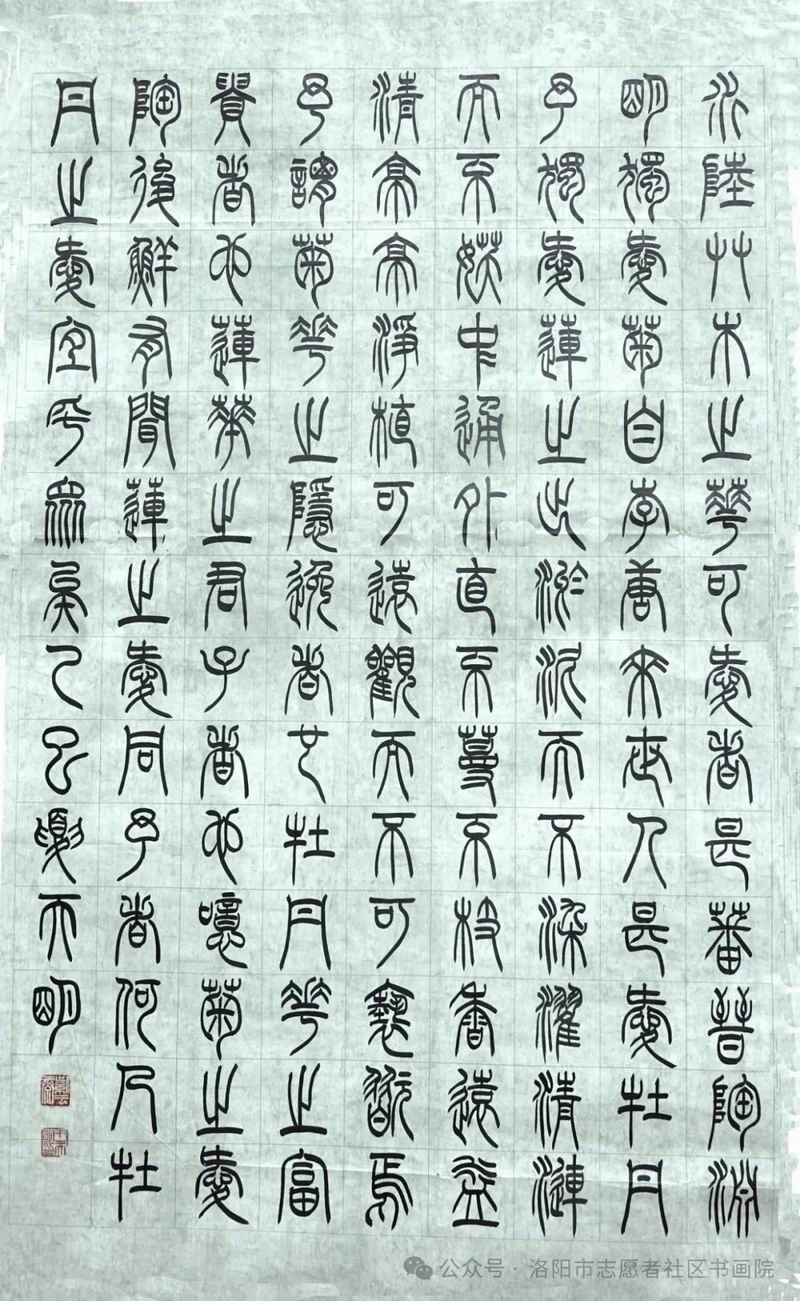 水陸艸木之華可愛者甚蕃晉陶淵
明獨愛菊自李唐來世人甚愛牡丹
予獨愛蓮之出淤泥而不染濯清漣
而不妖中通外直不蔓不枝香遠益
清亭亭淨植可遠觀而不可褻翫焉
予謂菊華之隱逸者也牡丹華之富
貴者也蓮華之君子者也噫菊之愛
陶後鮮有聞蓮之愛同予者何人牡
丹之愛宜乎眾矣乙巳天明
公众号·洛阳市志愿者社区书画院